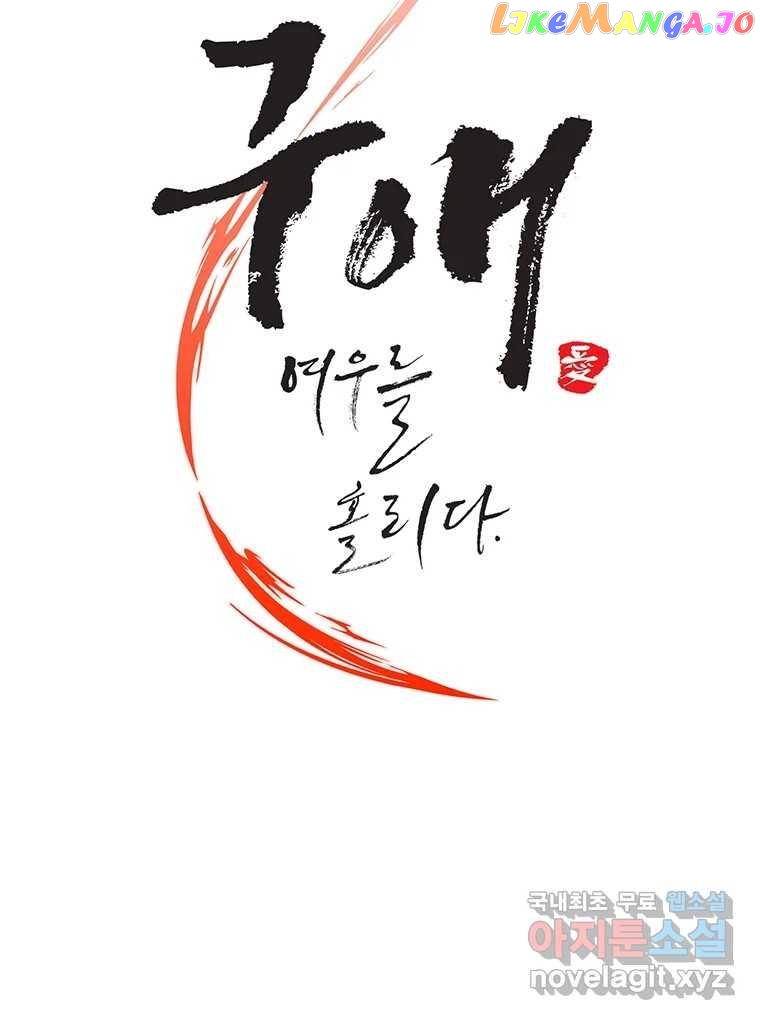 LIKEMANGA.IO
구애
여우를
愛
홀리다.
국내최초 무료 웹소설
아지툰소설
novelagit.xyz